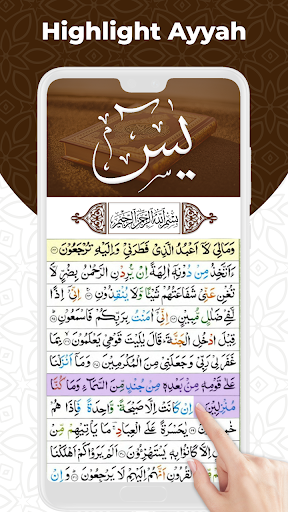 Highlight Ayyah
يٰسٓ
بِسْمِ اللهِ الرَّحْمٰنِ الرَّحِيْمِ
وَمَالِيَ لَاۤ اَعْبُدُ الَّذِيْ فَطَرَنِيْ وَاِلَيْهِ تُرْجَعُوْنَ
ءَاَتَّخِذُ مِنْ دُوْنِهٖۤ اٰلِهَةً اِنْ يُّرِدْنِ الرَّحْمٰنُ بِضُرٍّ لَّا
تُغْنِ عَنِّيْ شَفَاعَتُهُمْ شَيْـًٔا وَّلَا يُنْقِذُوْنِ اِنِّيْۤ اِذًا
لَّفِيْ ضَلٰلٍ مُّبِيْنٍ اِنِّيْۤ اٰمَنْتُ بِرَبِّكُمْ فَاسْمَعُوْنِ
قِيْلَ ادْخُلِ الْجَنَّةَ قَالَ يٰلَيْتَ قَوْمِيْ يَعْلَمُوْنَ بِمَا
غَفَرَ لِيْ رَبِّيْ وَجَعَلَنِيْ مِنَ الْمُكْرَمِيْنَ وَمَاۤ اَنْزَلْنَا
عَلٰى قَوْمِهٖ مِنْۢ بَعْدِهٖ مِنْ جُنْدٍ مِّنَ السَّمَآءِ وَمَا كُنَّا
مُنْزِلِيْنَ اِنْ كَانَتْ اِلَّا صَيْحَةً وَّاحِدَةً فَاِذَا هُمْ
خٰمِدُوْنَ يٰحَسْرَةً عَلَى الْعِبَادِ مَا يَاْتِيْهِمْ مِّنْ
كَانُوْا بِهٖ يَسْتَهْزِءُوْنَ اَلَمْ يَرَوْا كَمْ اَهْلَكْنَا
الْقُرُوْنِ اَنَّهُمْ اِلَيْهِمْ لَا يَرْجِعُوْنَ وَاِنْ